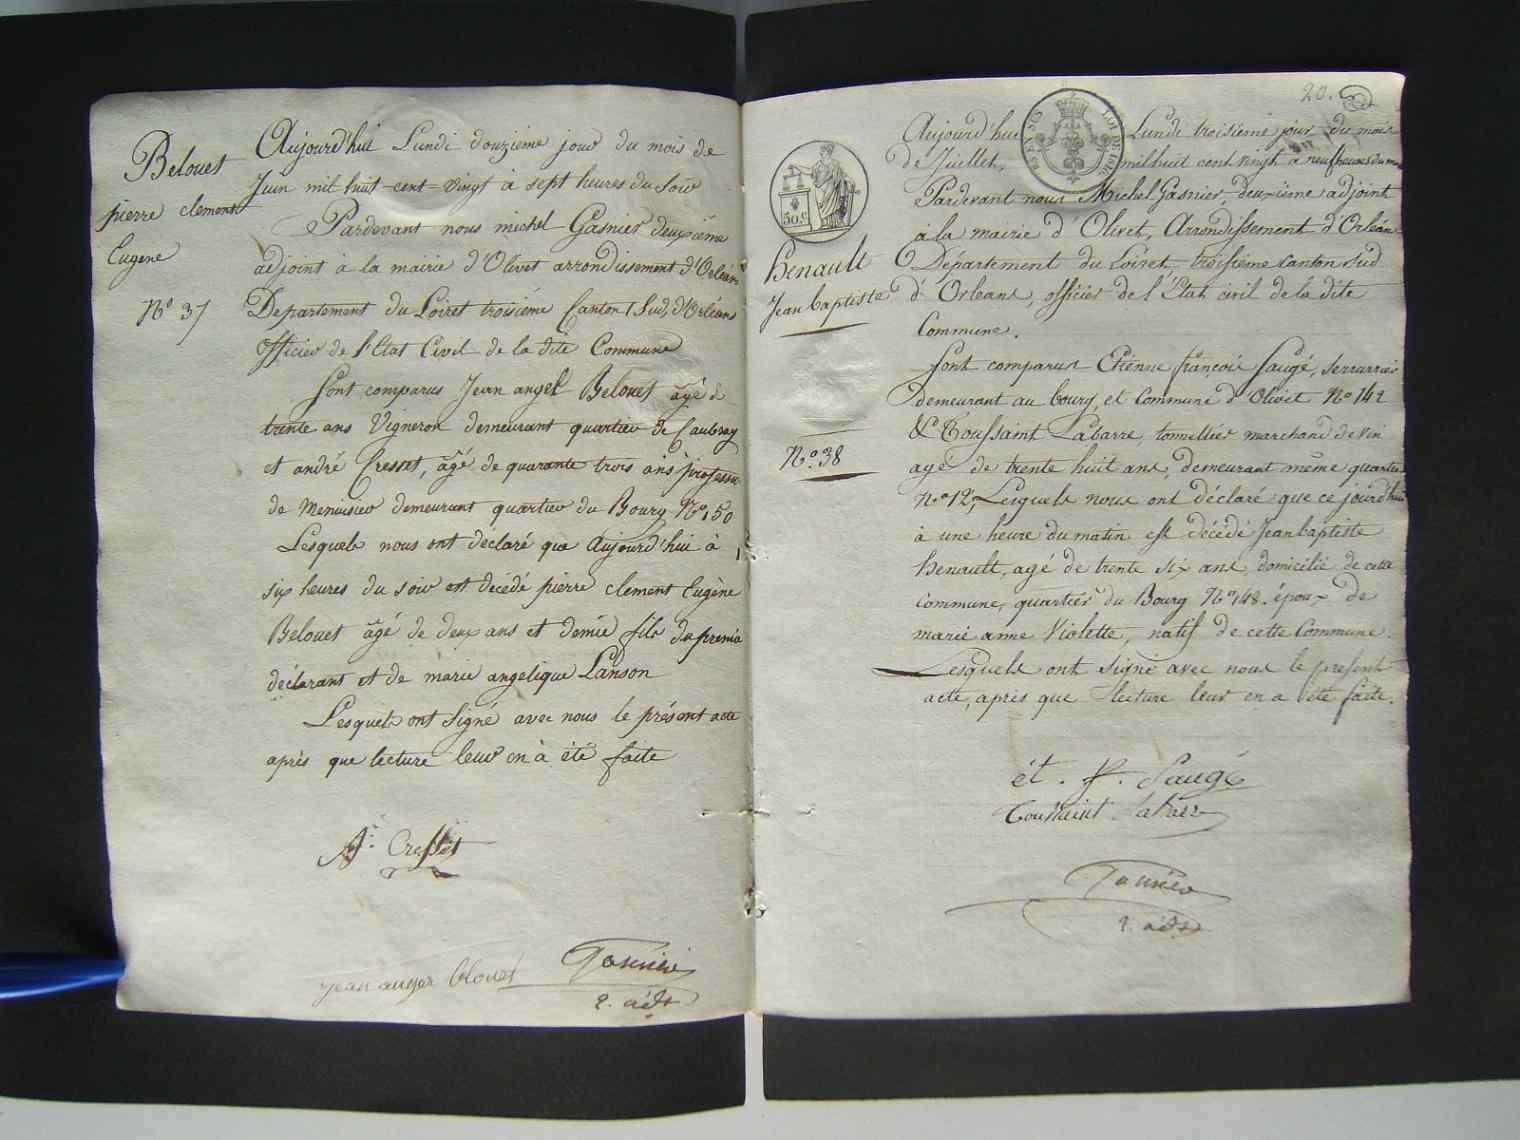 Belouet
pierre clement
Eugene
Nº 37
Aujourd'hui Lundi douzième jour du mois de
Juin mil huit-cent-vingt à sept heures du soir
Pardevant nous michel Gasnier deuxième
adjoint à la mairie d'Olivet arrondissement d'Orléans
Departement du Loiret troisième Canton Sud, d'Orléans
officier de l'Etat Civil de la dite Commune
Sont comparus Jean angel Belouet âgé de
trente ans Vigneron demeurant quartier de Caubray
et andré Cresset, âgé de quarante trois ans professn
de Menuisier demeurant quartier du Bourg Nº 150
Lesquels nous ont declaré que Aujourd'hui à
six heures du soir est décédé pierre clement Eugène
Belouet âgé de deux ans et demie fils du premier
déclarant et de marie angelique Lanson
Lesquels ont Signé avec nous le présent acte
après que lecture leur en à été faite
A. Cresset
jean anger blouet
Gasnier
2. adjt
20.
50 c
EN SUS
LOI DE 1816
henault
Jean baptiste
Nº 38
Aujourd'hui Lundi troisième jour du mois
De Juillet, mil huit cent vingt à neuf heures du matin
Pardevant nous Michel Gasnier, deuxième adjoint
à la mairie d'Olivet, Arrondissement d'Orléans
Département du Loiret, troisième Canton Sud
d'Orleans, officier de l'Etat civil de la dite
Commune.
Sont comparus Etienne françois Saugé, Serrurrier
demeurant au bourg, et Commune d'Olivet Nº 142
& Toussaint Labarre, tonnellier marchand de vin
agé de trente huit ans, demeurant même quartier
Nº 12, Lesquels nous ont déclaré que ce jourd'hui
à une heure du matin est décédé Jean baptiste
henault, agé de trente six ans, domicilié de cette
Commune, quartier du Bourg Nº 148. époux de
marie anne Violette, natif de cette Commune.
Lesquels ont Signé avec nous le present
acte, après que lecture leur en a été faite.
ét. f. Saugé
Toussaint Labare
Gasnier
2. adjt